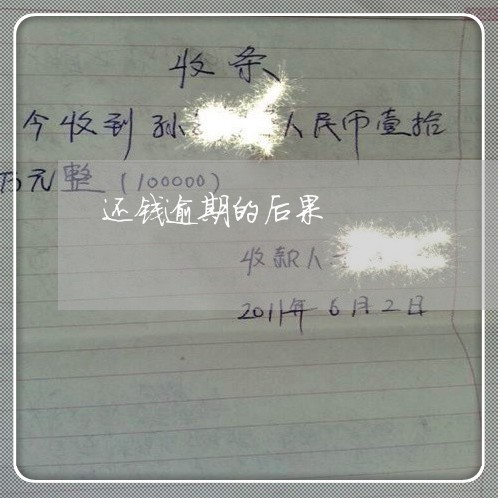 收条
今收到孙 人民币壹拾
万元整(100000)
还钱逾期的后果
收款人
2011年6月2日